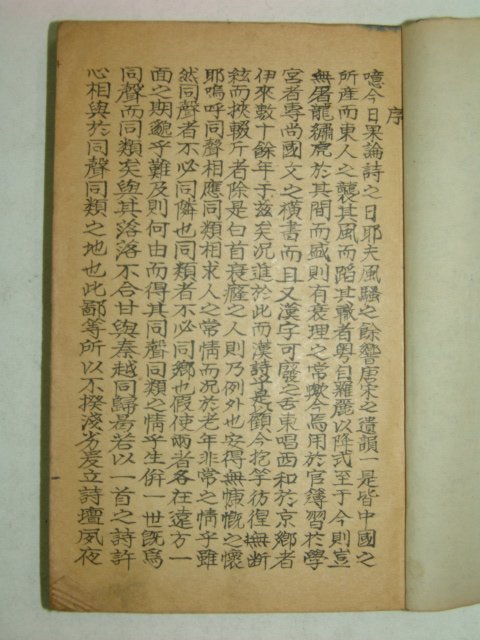 序
噫今日果論詩之日耶夫風騷之餘響唐宋之遺韻一是皆中國之
所産而東人之襲其風而蹈其職者粤自羅麗以降式至于今則豈
無屠龍繡虎於其間而盛則有衰理之常歟今焉用於官簿習於學
宮者專尚國文之橫書而且又漢字可廢之舌東唱西和於京鄉者
伊來數十餘年于玆矣況進於此而漢詩乎長顧今抱竽彷徨無斷
絃而挾輟斤者除是白首衰癃之人則乃例外也安得無慷慨之懷
耶嗚呼同聲相應同類相求人之常情而況於老年非常之情乎雖
然同聲者不必同隣也同類者不必同鄉也假使兩者各在遠方一
面之期邈乎難及則何由而得其同聲同類之情乎生倂一世旣爲
同聲而同類矣與其落落不合甘與秦越同歸曷若以一首之詩許
心相與於同聲同類之地也此鄙等所以不揆淺劣爰立詩壇夙夜